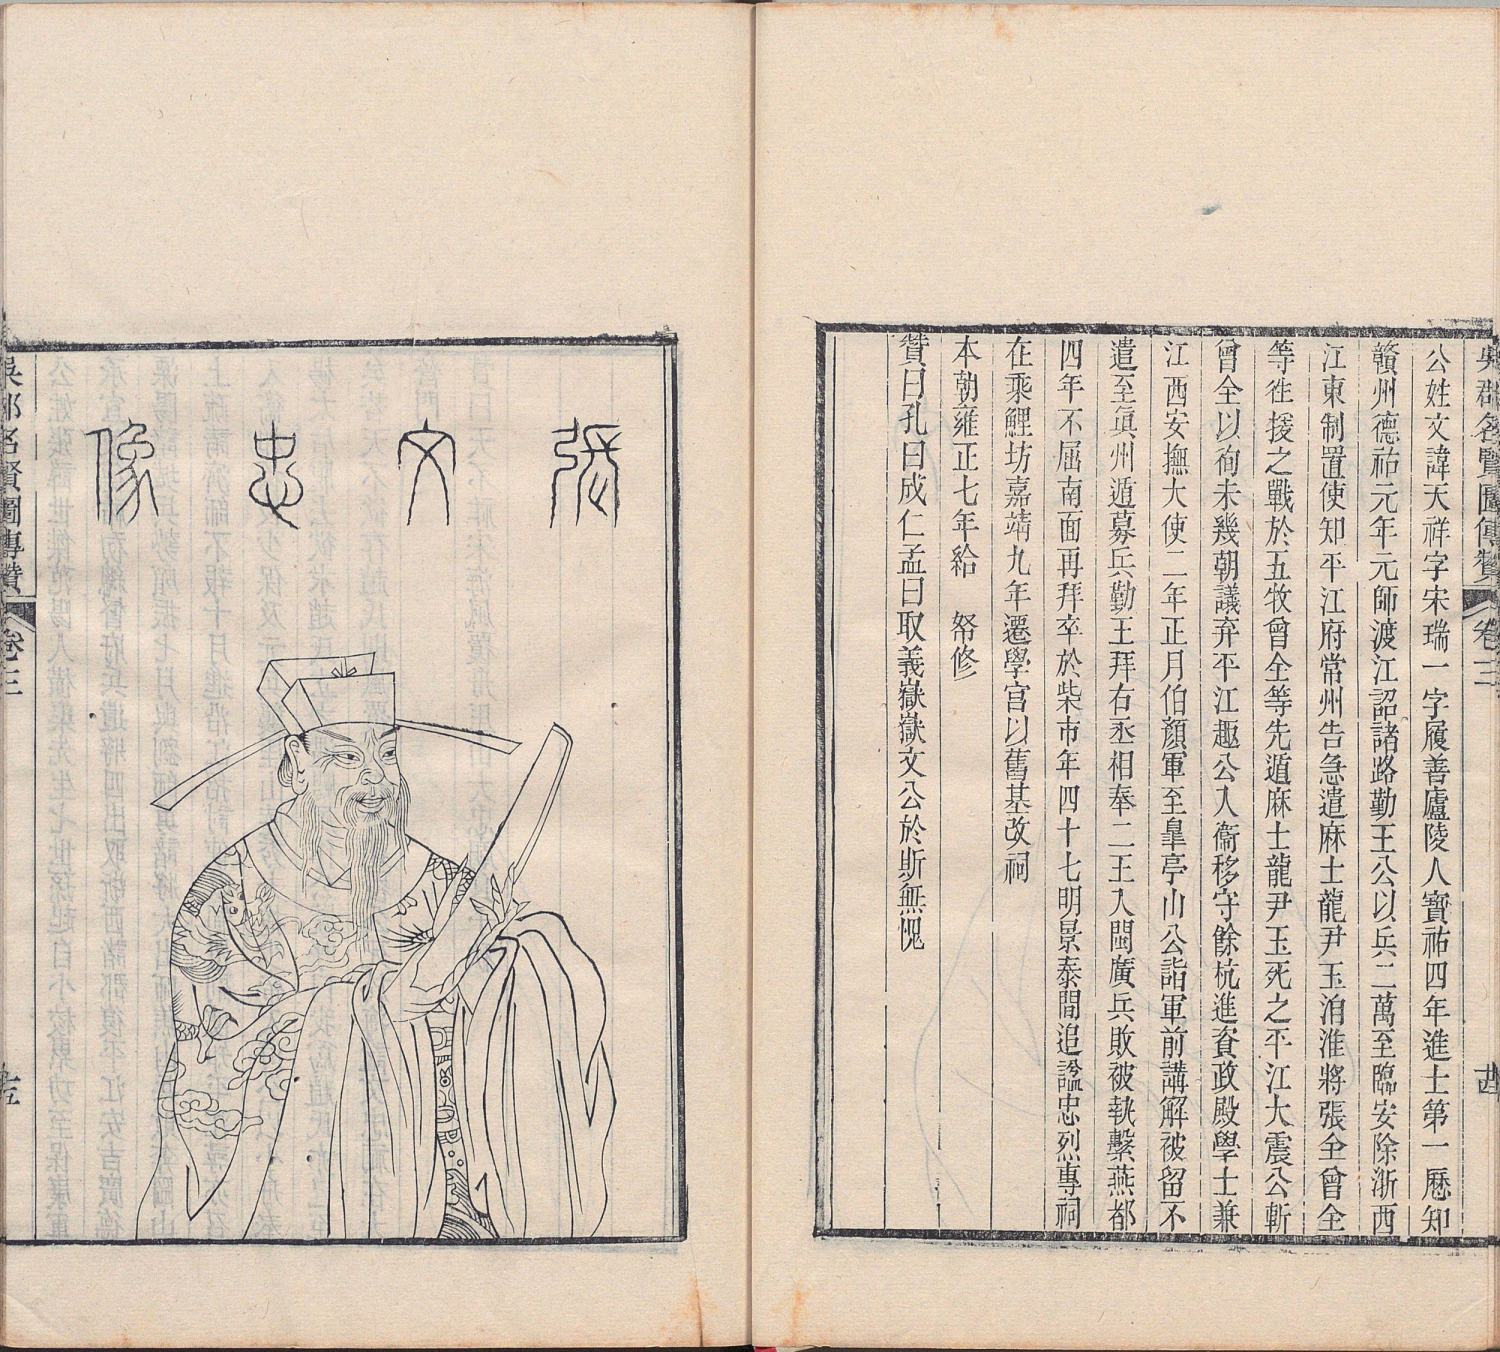 吳郡名賢圖傳贊 卷三 廿四
公姓文諱天祥字宋瑞一字履善廬陵人寶祐四年進士第一歷知
贛州德祐元年元師渡江詔諸路勤王公以兵二萬至臨安除浙西
江東制置使知平江府常州告急遣麻士龍尹玉洎淮將張全曾全
等徃援之戰於五牧曾全等先遁麻士龍尹玉死之平江大震公斬
曾全以徇未幾朝議弃平江趣公入衞移守餘杭進資政殿學士兼
江西安撫大使二年正月伯顏軍至臯亭山公詣軍前講解被留不
遣至眞州遁募兵勤王拜右丞相奉二王入閩廣兵敗被執繫燕都
四年不屈南面再拜卒於柴市年四十七明景泰間追謚忠烈專祠
在乘鯉坊嘉靖九年遷學宫以舊基改祠
本朝雍正七年給 帑修
贊曰孔曰成仁孟曰取義嶽嶽文公於斯無愧
張文忠像
吳郡名賢圖傳贊 卷三 廿五